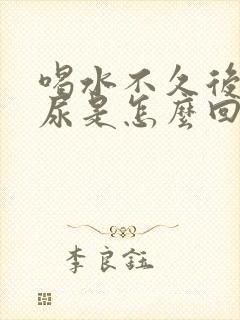 喝水不久後
尿是怎麼回
李良鈺